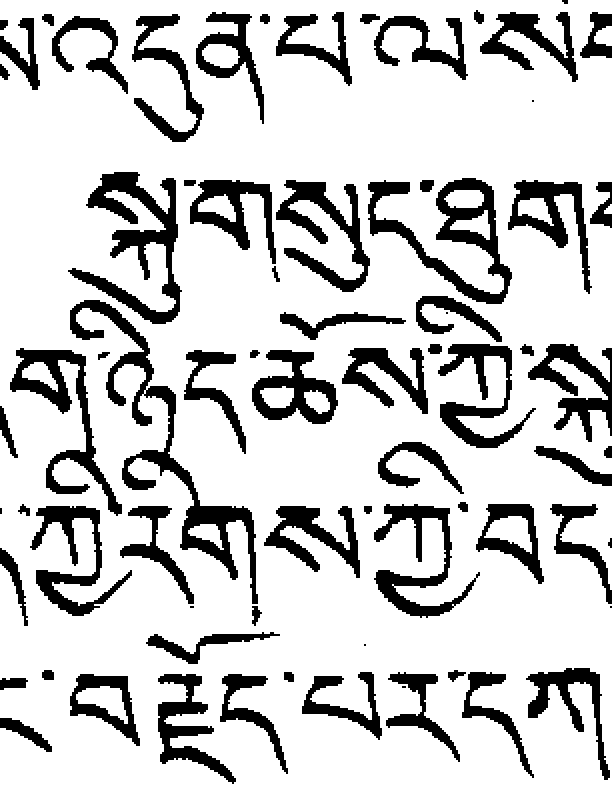 ས་འདུན་པ་ལ་ས
སྐུ་གསུང་ཐུགས
ག་ཉིད་ཆོས་ཀྱི་སྐུ
ཀྱི་རིགས་ཀྱི་བད
ང་བརྗོད་པར་དཀ